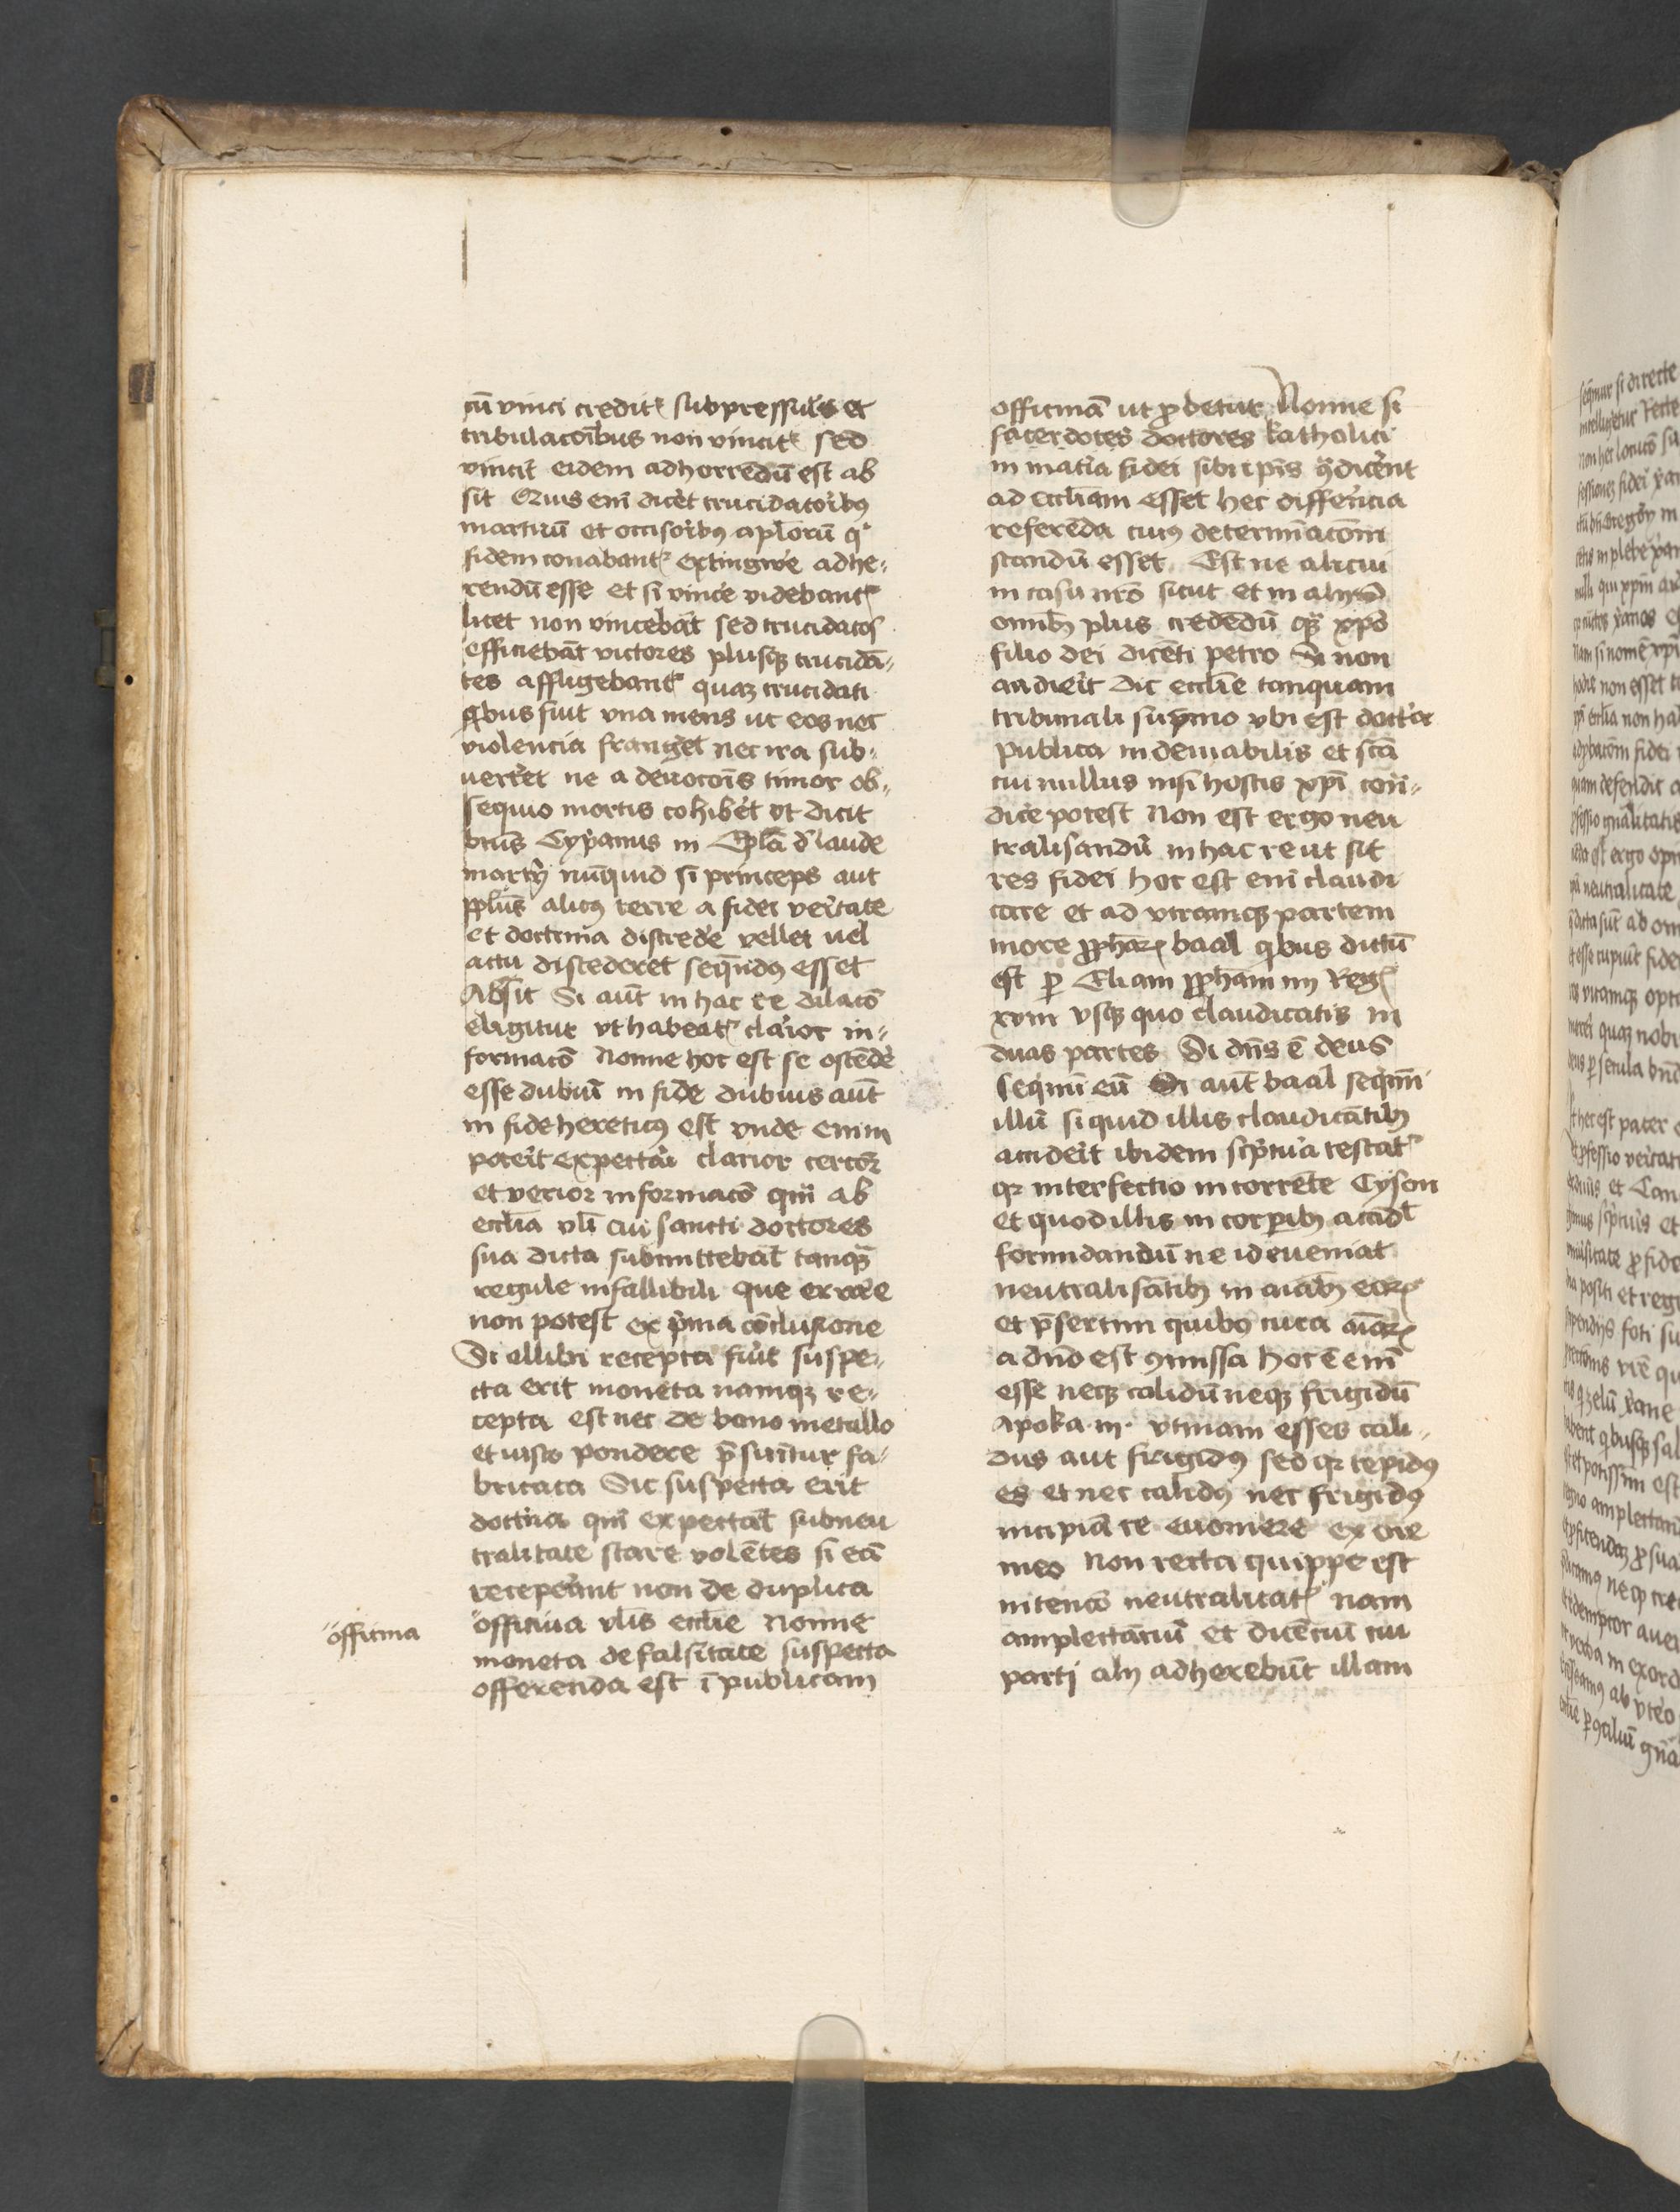 cū vinci credit᷑ subpressuris et
tribulacōibus non vincit᷑ sed
vincit eidem adherrēdū est ab
sit Quis enī dicēt trucidatoribꝰ
martirū et occisoribꝰ aplorū q
fidem conabant᷑ extingwe᷑ adhe⸗
rendū esse et si vince᷑ videbant᷑
licet non vincebāt sed trucidatos
efficiebāt victores plusqꝫ trucidā⸗
tes affligebant᷑ quaꝫ trucidati
qbus fuit vna mens ut eos nec
violencia frangēt nec ira sub⸗
vertēt ne a deuocōis timor ob⸗
sequio mortis cohibēt vt dicit
btūs Cyp̄anus in Epl̄a d' laude
martȳ nūquid si princeps aut
ppl̄us alicꝰ terre a fidei veritate
et doctrina discrede᷑ vellet uel
actu discederet seq̄ndꝰ esset
Absit Si aūt in hac re dilacō
eligitur vt habeat᷑ clarior in⸗
formacō Nonne hoc est se ostēde᷑
esse dubiū in fide dubius aūt
in fide hereticꝰ est vnde enim
poterit expectari clarior certior
et verior informacō qm̄ ab
eccl̄ia vl̄i cui sancti doctores
sua dicta submittebāt tanqꝫ
regule infallibili que errare
non potest ex p̄ma cōclusione
Si ellibi recepta fuit suspe⸗
cta erit moneta namqꝫ re⸗
cepta est nec de bono metallo
et iusto pondere p̄sumitur fa⸗
bricata Sic suspecta erit
doctrīa qm̄ expectāt subneu
tralitate stare volētes si eā
receperint non de duplica
"officina vl̄is eccl̄ie Nonne
moneta de falsitate suspecta
offerenda est ī publicam
"officina
officinā ut ꝓbetur Nonne si
sacerdotes doctores katholici
in mat̄ia fidei sibi ip̄is ꝯdicērent
ad eccl̄iam esset hec differēcia
referēda cuiꝰ determinacōni
standū esset Est ne alicui
in casu nr̄o sicut et in alijs
omībꝫ plus credēdū qꝫ xp̄o
filio dei dicēti petro Si non
audierit dic eccl̄ie tanquam
tribunali sup̄mo vbi est doctrīa
publica indeuiabilis et scā
cui nullus nisi hostis xp̄i con⸗
dice᷑ potest Non est ergo neu
tralisandū in hac re ut sit
res fidei hoc est enī claudi
care et ad vtramqꝫ partem
more ꝓphar᷑ baal qbus dictū
est ꝑ Eliam ꝓpham iij Reg᷑
xviij vsqꝫ quo claudicatis in
duas partes Si dn̄s ē deus
seqmī eū Si aūt baal seqmī
illū si quid illis claudicātibꝫ
acciderit ibidem scp̄tura testat᷑
qꝛ interfectio in torrēte Cyson
et quod illis in corꝑibꝫ accidt
formidandū ne id eueniat
neutralisātibꝫ in aīabꝫ eorꝫ
et p̄sertim quibꝰ cura aīarꝫ
a dn̄o est ꝯmissa hoc ē enī
esse neqꝫ calidū neqꝫ frigidū
apoka. iij. vtinam esses cali⸗
dus aut frigidꝰ sed qꝛ tepidꝰ
es et nec calidꝰ nec frigidꝰ
incipiā te euomere ex ore
meo Non recta quippe est
intencō neutralitat᷑ nam
amplectanciū et dicēciū cui
parti alij adherebūt illam